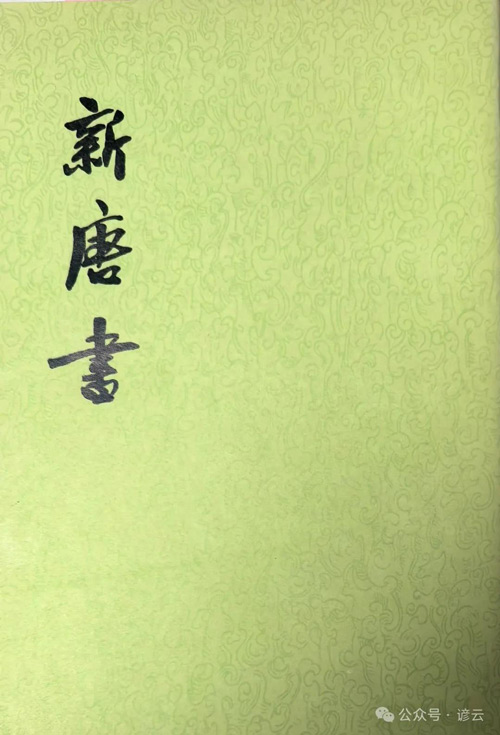 新唐書
公众号·谚云